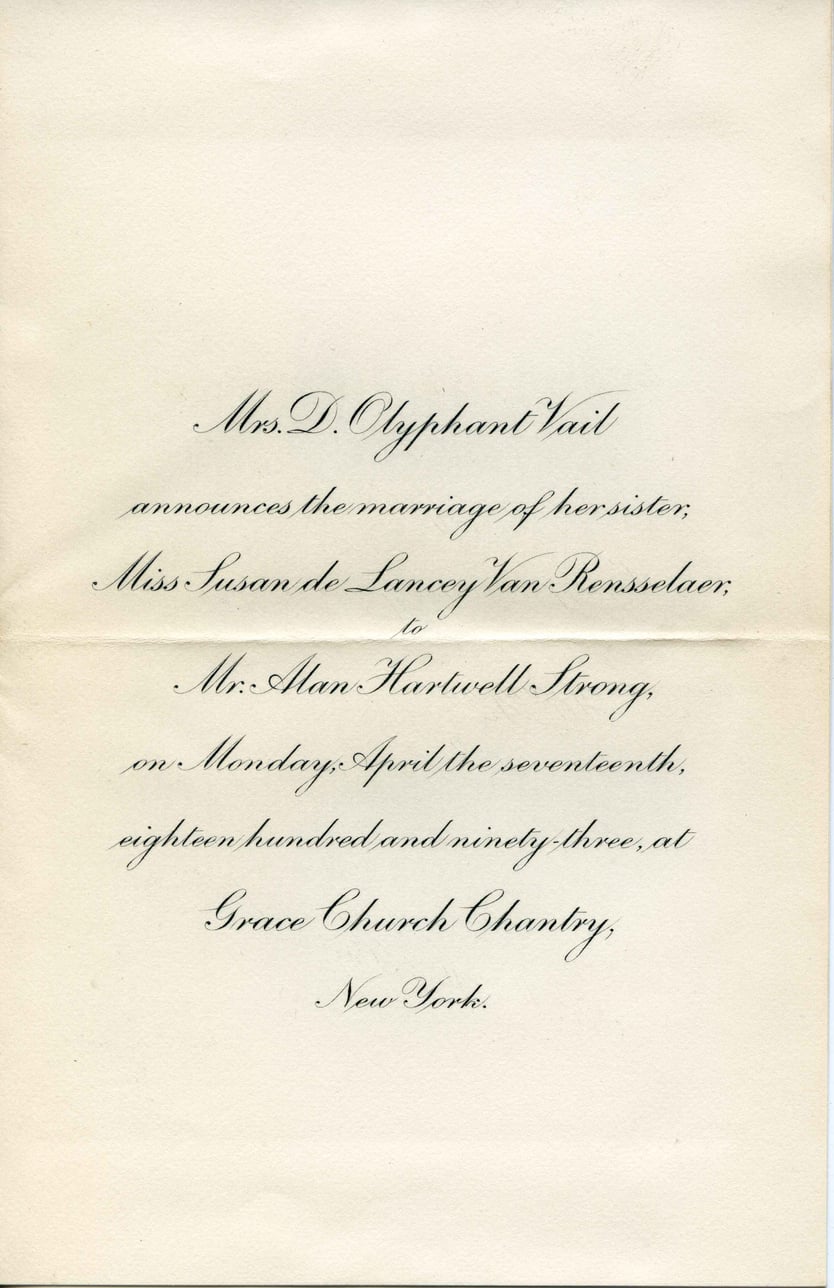 Mrs. D. Olyphant Vail
announces the marriage of her sister,
Miss Susan de Lancey Van Rensselaer,
to
Mr. Alan Hartwell Strong,
on Monday, April the seventeenth,
eighteen hundred and ninety-three, at
Grace Church Chantry,
New York.